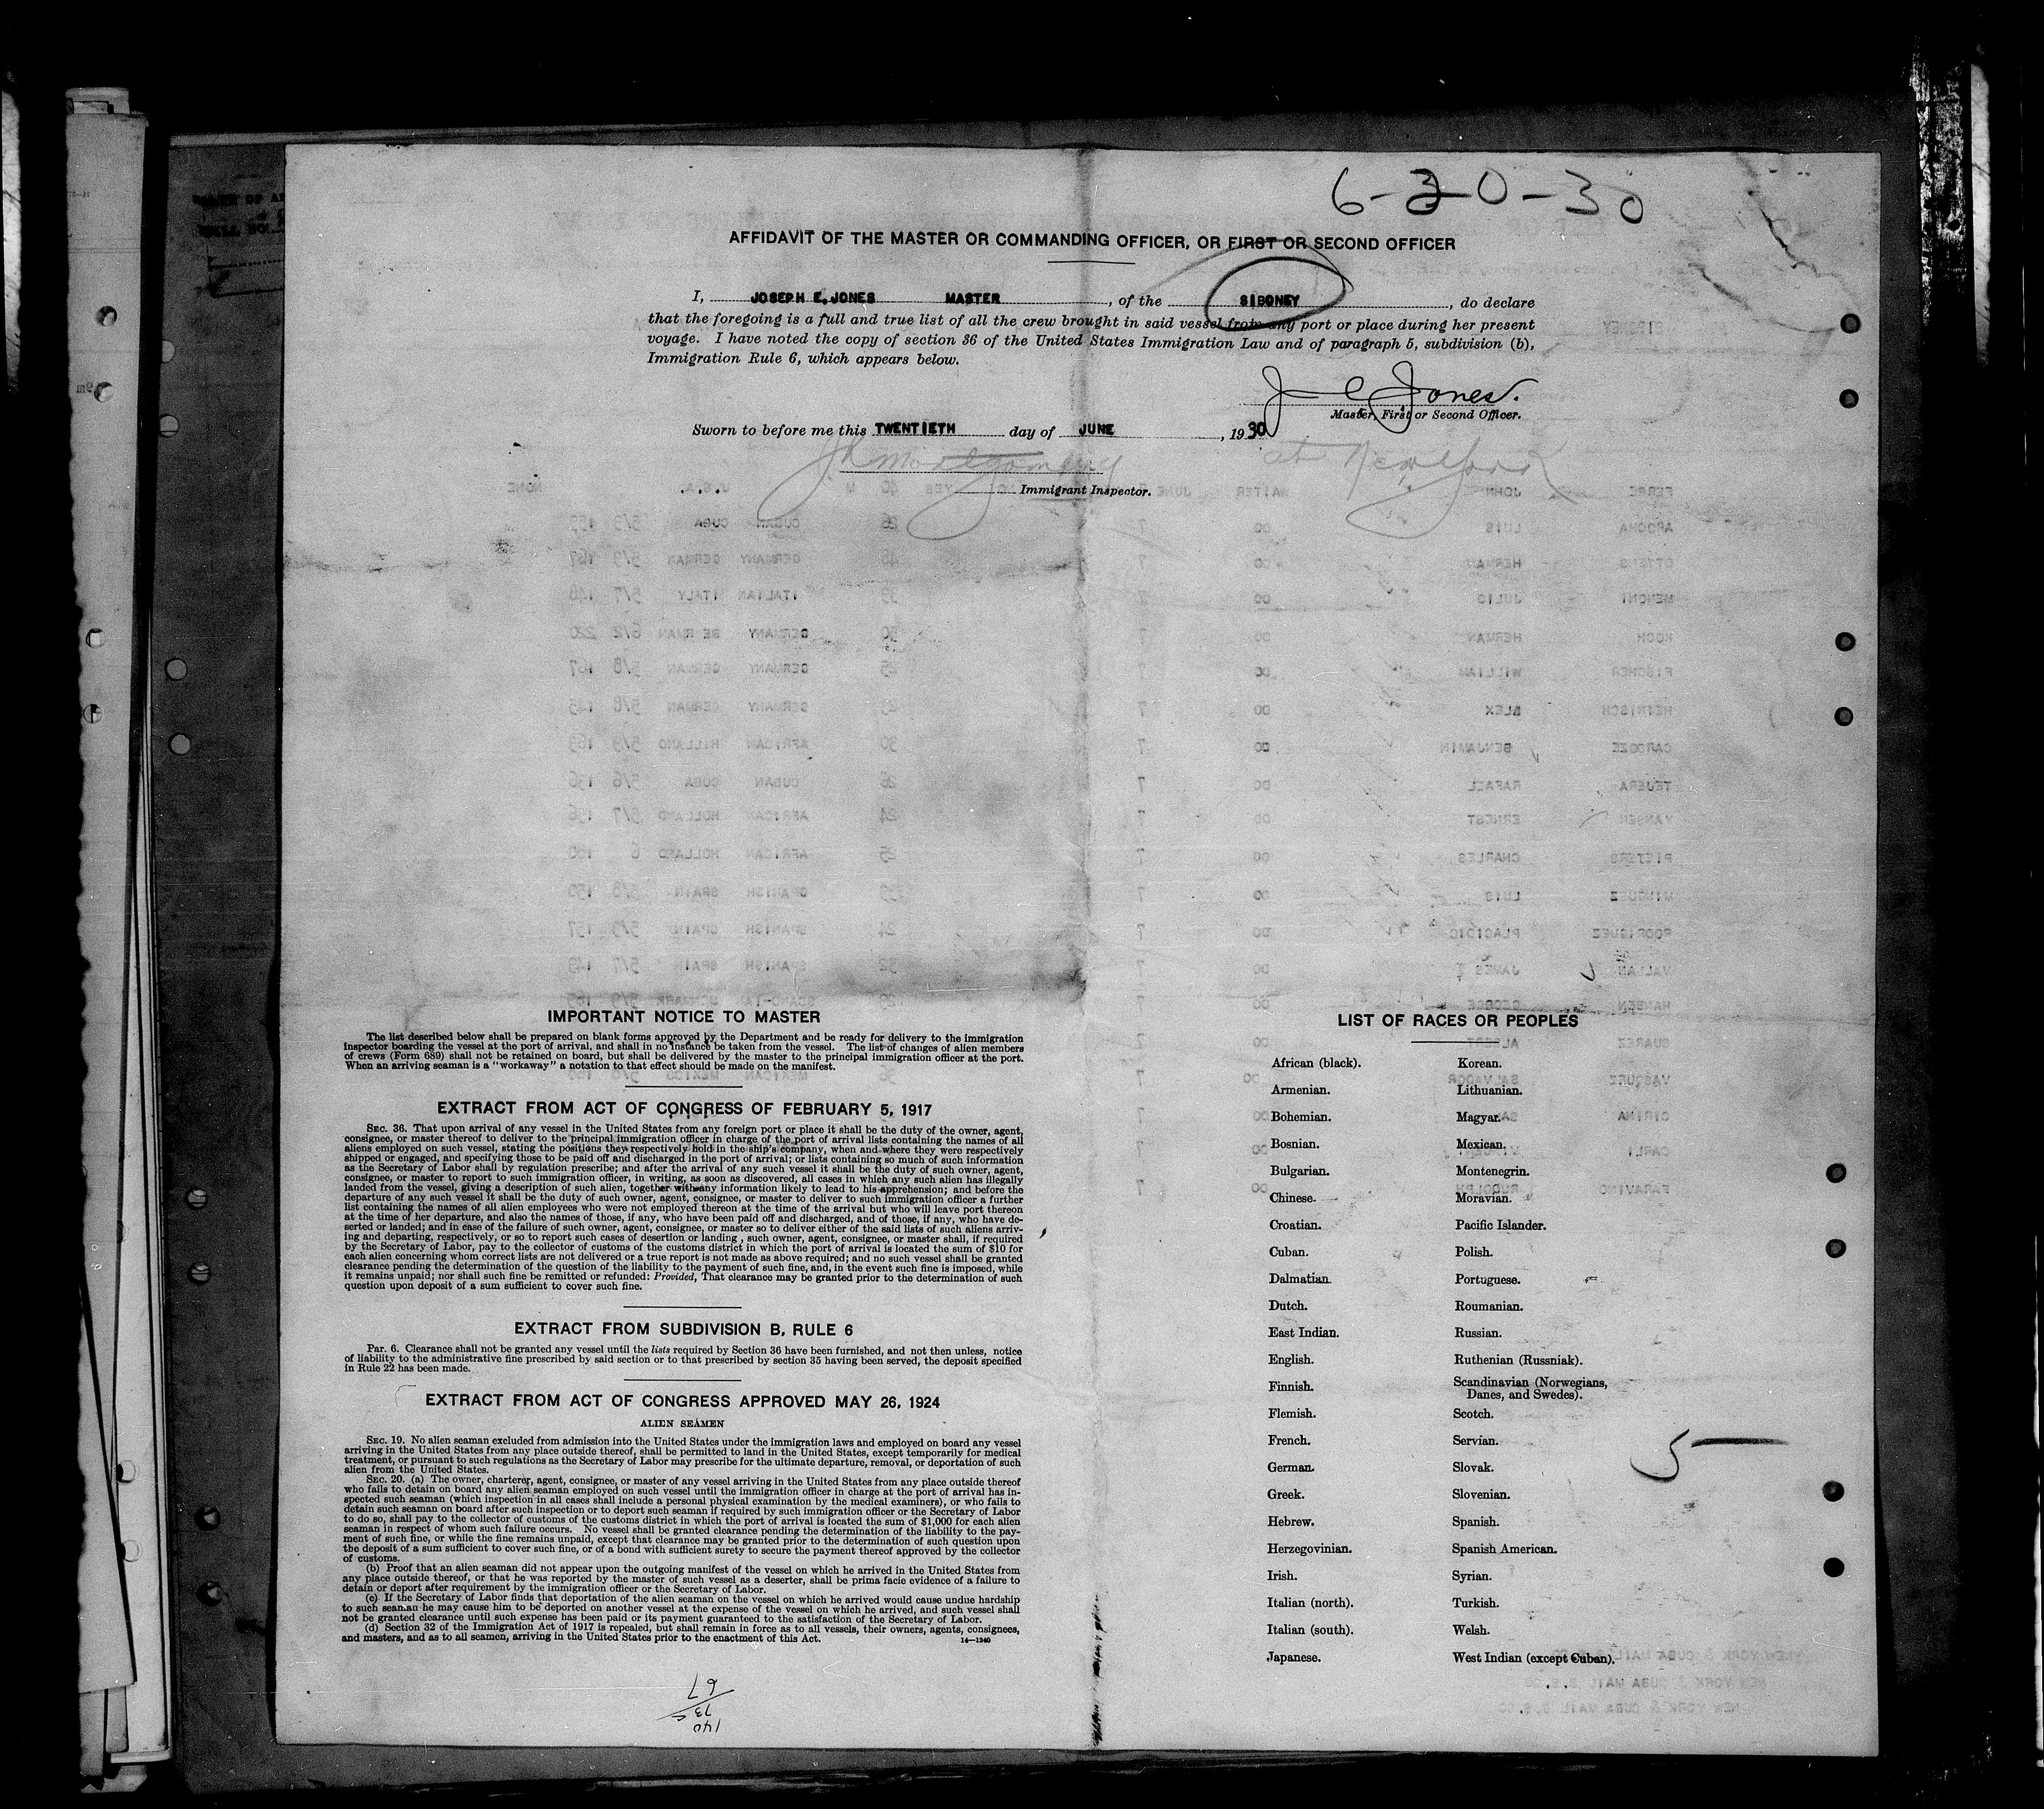 6-20-30
AFFIDAVIT OF THE MASTER OR COMMANDING OFFICER, OR FIRST OR SECOND OFFICER
I, JOSEPH E. JONES MASTER, of the SIBONEY, do declare
that the foregoing is a full and true list of all the crew brought in said vessel from any port or place during her present
voyage. I have noted the copy of section 36 of the United States Immigration Law and of paragraph 5, subdivision (b),
Immigration Rule 6, which appears below.
J E Jones.
Master, First or Second Officer.
Sworn to before me this TWENTIETH day of JUNE, 1930
at New York
Immigrant Inspector.
IMPORTANT NOTICE TO MASTER
The list described below shall be prepared on blank forms approved by the Department and be ready for delivery to the immigration
inspector boarding the vessel at the port of arrival, and shall in no instance be taken from the vessel. The list of changes of alien members
of crews (Form 689) shall not be retained on board, but shall be delivered by the master to the principal immigration officer at the port.
When an arriving seaman is a "workaway" a notation to that effect should be made on the manifest.
EXTRACT FROM ACT OF CONGRESS OF FEBRUARY 5, 1917
SEC. 36. That upon arrival of any vessel in the United States from any foreign port or place it shall be the duty of the owner, agent,
consignee, or master thereof to deliver to the principal immigration officer in charge of the port of arrival lists containing the names of all
aliens employed on such vessel, stating the positions they respectively hold in the ship's company, when and where they were respectively
shipped or engaged, and specifying those to be paid off and discharged in the port of arrival; or lists containing so much of such information
as the Secretary of Labor shall by regulation prescribe; and after the arrival of any such vessel it shall be the duty of such owner, agent,
consignee, or master to report to such immigration officer, in writing, as soon as discovered, all cases in which any such alien has illegally
landed from the vessel, giving a description of such alien, together with any information likely to lead to his apprehension; and before the
departure of any such vessel it shall be the duty of such owner, agent, consignee, or master to deliver to such immigration officer a further
list containing the names of all alien employees who were not employed thereon at the time of the arrival but who will leave port thereon
at the time of her departure, and also the names of those, if any, who have been paid off and discharged, and of those, if any, who have de-
serted or landed; and in case of the failure of such owner, agent, consignee, or master so to deliver either of the said lists of such aliens arriv-
ing and departing, respectively, or so to report such cases of desertion or landing , such owner, agent, consignee, or master shall, if required
by the Secretary of Labor, pay to the collector of customs of the customs district in which the port of arrival is located the sum of $10 for
each alien concerning whom correct lists are not delivered or a true report is not made as above required; and no such vessel shall be granted
clearance pending the determination of the question of the liability to the payment of such fine, and, in the event such fine is imposed, while
it remains unpaid; nor shall such fine be remitted or refunded: Provided, That clearance may be granted prior to the determination of such
question upon deposit of a sum sufficient to cover such fine.
EXTRACT FROM SUBDIVISION B, RULE 6
Par. 6. Clearance shall not be granted any vessel until the lists required by Section 36 have been furnished, and not then unless, notice
of liability to the administrative fine prescribed by said section or to that prescribed by section 35 having been served, the deposit specified
in Rule 22 has been made.
EXTRACT FROM ACT OF CONGRESS APPROVED MAY 26, 1924
ALIEN SEAMEN
SEC. 19. No alien seaman excluded from admission into the United States under the immigration laws and employed on board any vessel
arriving in the United States from any place outside thereof, shall be permitted to land in the United States, except temporarily for medical
treatment, or pursuant to such regulations as the Secretary of Labor may prescribe for the ultimate departure, removal, or deportation of such
alien from the United States.
SEC. 20. (a) The owner, charterer, agent, consignee, or master of any vessel arriving in the United States from any place outside thereof
who fails to detain on board any alien seaman employed on such vessel until the immigration officer in charge at the port of arrival has in-
spected such seaman (which inspection in all cases shall include a personal physical examination by the medical examiners), or who fails to
detain such seaman on board after such inspection or to deport such seaman if required by such immigration officer or the Secretary of Labor
to do so, shall pay to the collector of customs of the customs district in which the port of arrival is located the sum of $1,000 for each alien
seaman in respect of whom such failure occurs. No vessel shall be granted clearance pending the determination of the liability to the pay-
ment of such fine, or while the fine remains unpaid, except that clearance may be granted prior to the determination of such question upon
the deposit of a sum sufficient to cover such fine, or of a bond with sufficient surety to secure the payment thereof approved by the collector
of customs.
(b) Proof that an alien seaman did not appear upon the outgoing manifest of the vessel on which he arrived in the United States from
any place outside thereof, or that he was reported by the master of such vessel as a deserter, shall be prima facie evidence of a failure to
detain or deport after requirement by the immigration officer or the Secretary of Labor.
(c) If the Secretary of Labor finds that deportation of the alien seaman on the vessel on which he arrived would cause undue hardship
to such seaman he may cause him to be deported on another vessel at the expense of the vessel on which he arrived, and such vessel shall
not be granted clearance until such expense has been paid or its payment guaranteed to the satisfaction of the Secretary of Labor.
(d) Section 32 of the Immigration Act of 1917 is repealed, but shall remain in force as to all vessels, their owners, agents, consignees,
and masters, and as to all seamen, arriving in the United States prior to the enactment of this Act.
14—1240
LIST OF RACES OR PEOPLES
African (black). Korean.
Armenian. Lithuanian.
Bohemian. Magyar.
Bosnian. Mexican.
Bulgarian. Montenegrin.
Chinese. Moravian.
Croatian. Pacific Islander.
Cuban. Polish.
Dalmatian. Portuguese.
Dutch. Roumanian.
East Indian. Russian.
English. Ruthenian (Russniak).
Finnish. Scandinavian (Norwegians,
Danes, and Swedes).
Flemish. Scotch.
French. Servian.
German. Slovak.
Greek. Slovenian.
Hebrew. Spanish.
Herzegovinian. Spanish American.
Irish. Syrian.
Italian (north). Turkish.
Italian (south). Welsh.
Japanese. West Indian (except Cuban).
5—
140
73
67